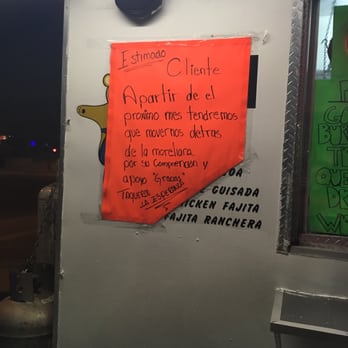 Estimado
Cliente
Apartir de el
proximo mes tendremos
que movernos detras
de la moreliana
por su comprencion y
apoyo "Gracias"
TAQUERIA
LA ESPERANZA
GUISADA
CHICKEN FAJITA
FAJITA RANCHERA